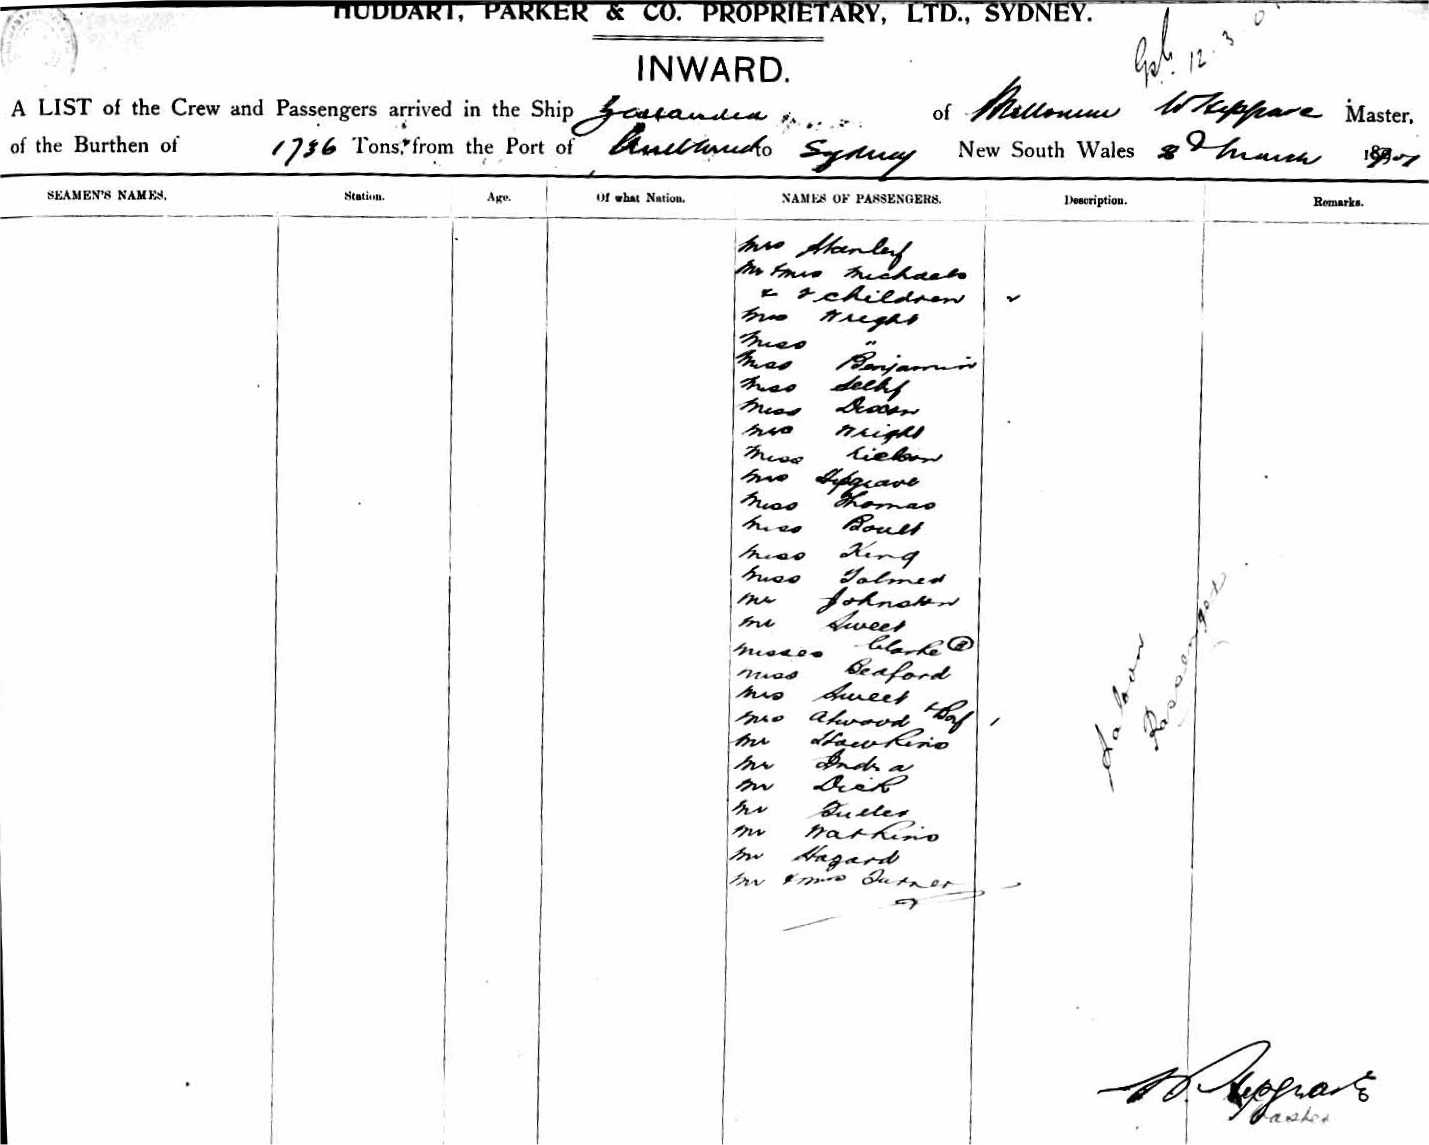 HUDDART, PARKER & CO. PROPRIETARY, LTD., SYDNEY.
12.3.0
INWARD.
A LIST of the Crew and Passengers arrived in the Ship Zealandia of Melbourne W Hipgrave Master,
of the Burthen of 1736 Tons, from the Port of to Sydney New South Wales 8 March 1901
SEAMEN'S NAMES. Station. Age. Of what Nation. NAMES OF PASSENGERS. Description. Remarks.
Mrs Stanley
Mr & Mrs Michaels
& 2 children
Mrs Wright
Miss "
Miss Benjamin
Miss Selby
Miss Dixon
Mrs Wright
Miss
Mrs Hipgrave
Miss Thomas
Miss Boult
Miss King
Miss Tolmed
Mr Johnston
Mr Sweet
Misses Clarke (2)
Miss Beaford
Mrs Sweet
Mrs Atwood & Boy
Mr Hawkins
Mr
Mr Dick
Mr Fuller
Mr Watkins
Mr Hazard
Mr & Mrs Turner
Saloon
Passengers
W. Hipgrave
Master